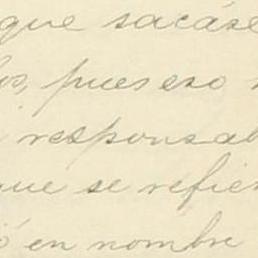 que sacáse
los, pues eso
responsab
que se refier
ó en nombre